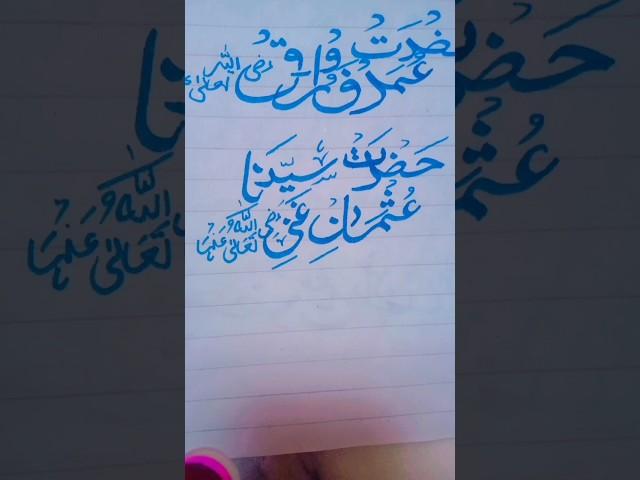 حضرت
عمر فاروق رضی اللہ تعالیٰ
حَضْرَتْ سَیِّدَنَا
عُثْمَانِ غَنِی رَضِیَ اللّٰہُ تَعَالٰی عَنْہُمَا